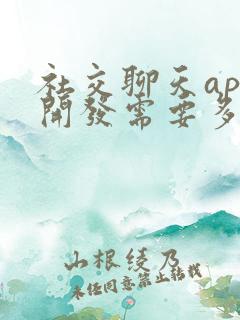 社交聊天ap
開發需要多
山根綾乃
未经同意禁止转载